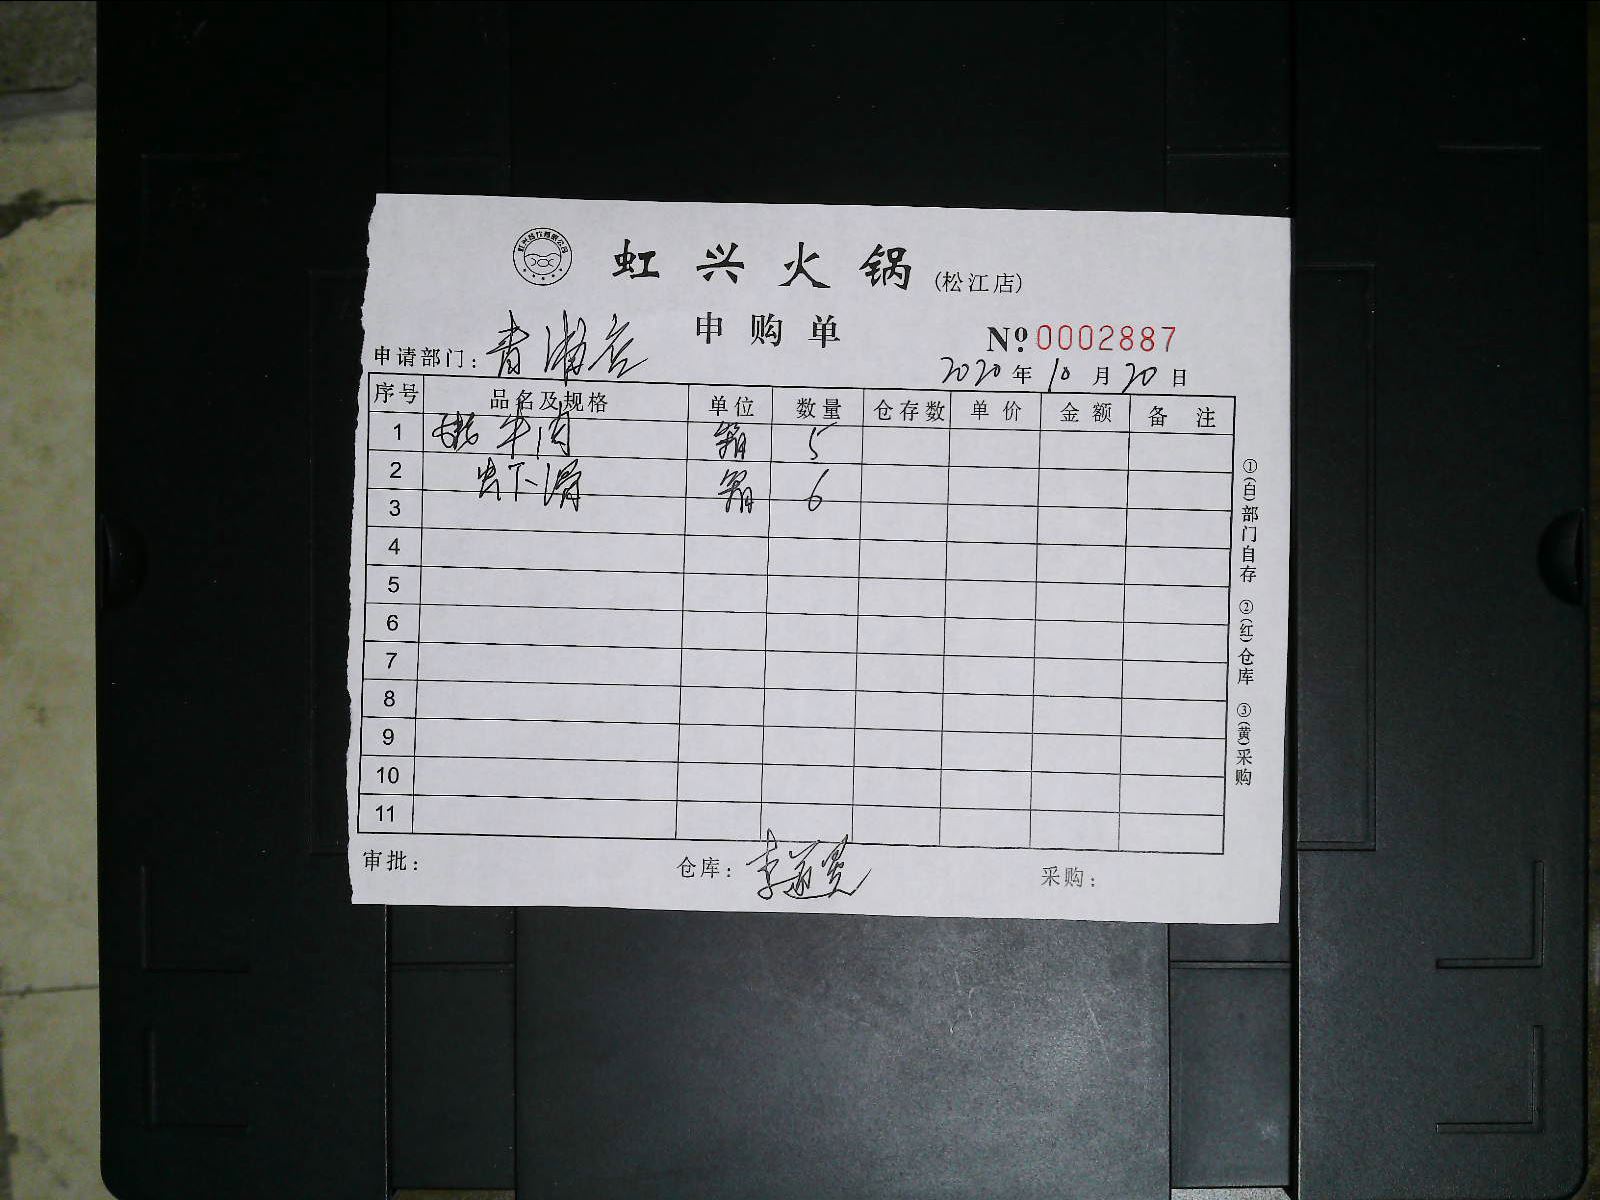 虹兴火锅 (松江店)
申购单
No 0002887
申请部门: 青浦店
2020 年 10 月 20 日
序号 品名及规格 单位 数量 仓存数 单价 金额 备注
1 牛肉 箱 5
2 下滑 箱 6
3
4
5
6
7
8
9
10
11
审批: 仓库: 李 采购:
①(白)部门自存 ②(红)仓库 ③(黄)采购